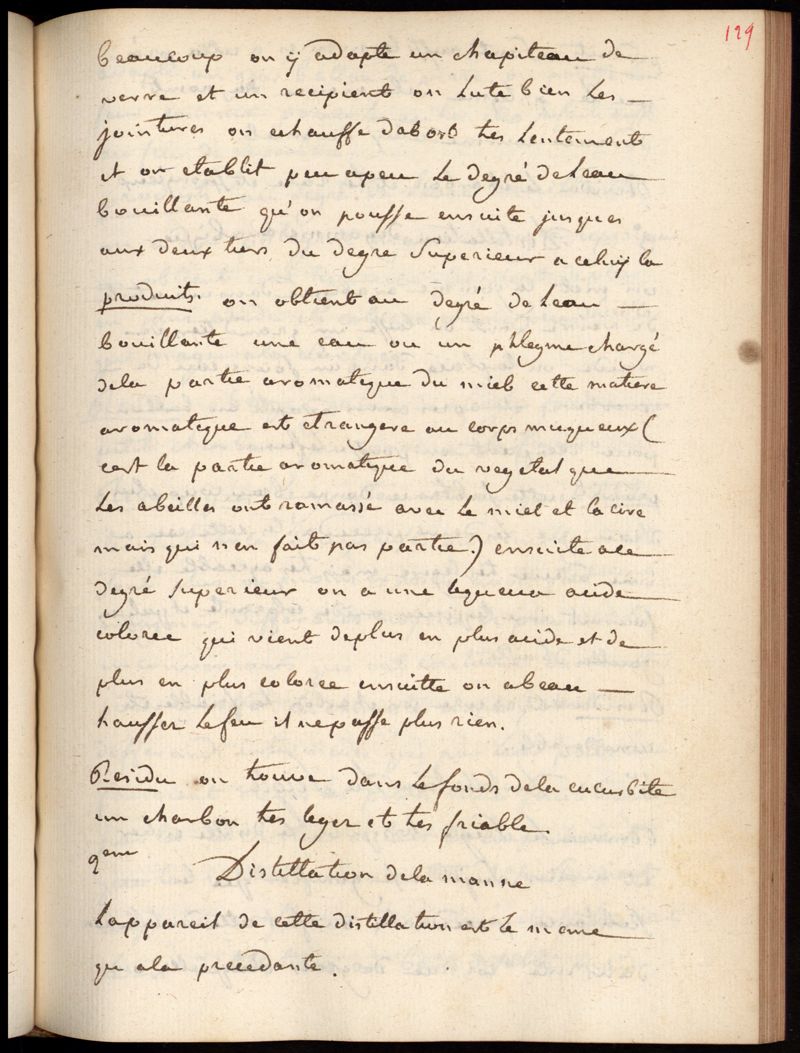 129
beaucoup on ÿ adapte un chapiteau de
verre et un recipient on Lute bien Les —
jointures on echauffe dabord tres Lentement
et on etablit peu apeu Le degré deLeau
bouillante qu'on pousse ensuite jusques
aux deux tiers du degre Superieur a celuy la
produits. on obtient au degré deLeau —
bouillante une eau ou un phlegme chargé
dela partie aromatique du miel cette matiere
aromatique est etrangere au corps muqueux (
cest la partie aromatique du vegetal que —
Les abeilles ont ramassé avec Le miel et la cire
mais qui nen fait pas partie.) ensuite ace
degré Superieur on a une liqueur acide
coloree qui vient deplus en plus acide et de
plus en plus coloree ensuitte on abeau —
hausser Lefeu il nepasse plus rien.
Residu on trouve dans Lefonds dela cucurbite
un charbon tres leger et tres friable.
2eme Distillation dela manne
Lappareil de cette distillation est Le meme
qu ala precedante.